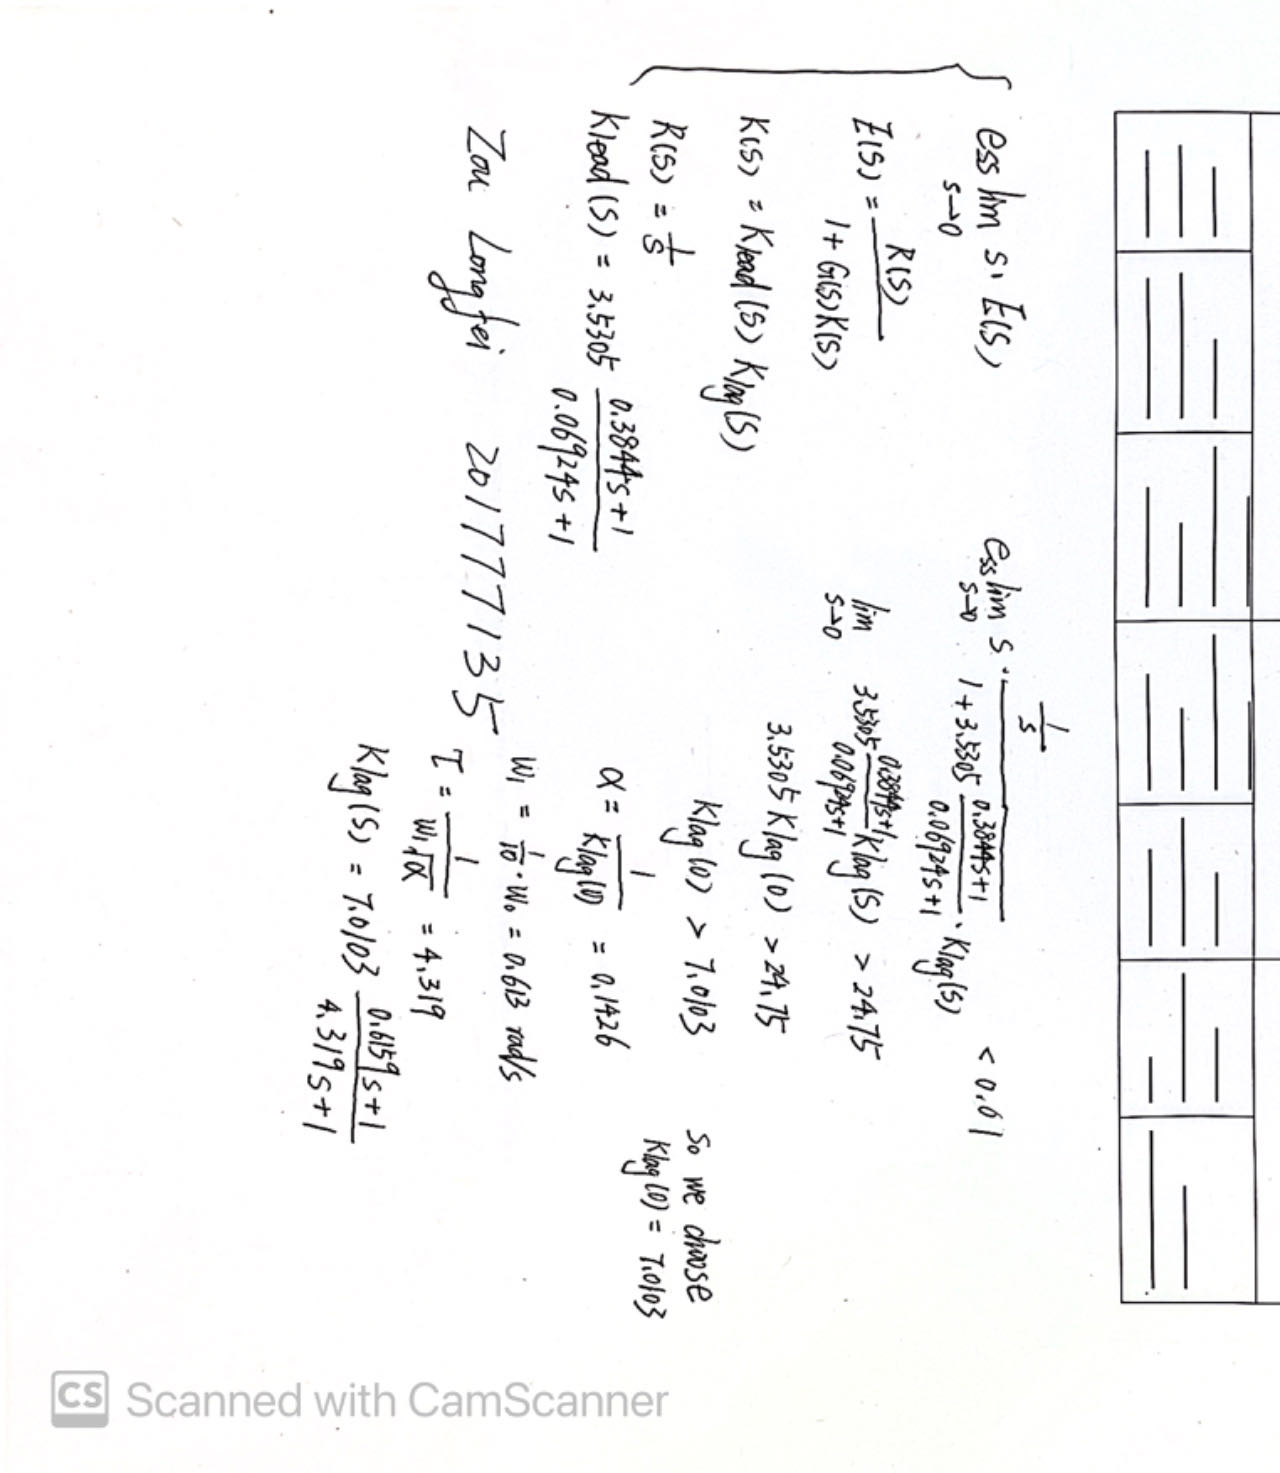 ess lim s→0 s · E(s)
E(s) = R(s) / 1 + G(s)K(s)
K(s) = Klead(s) Klag(s)
R(s) = 1/s
Klead(s) = 3.5305 0.3844s+1 / 0.06924s+1
Zou Longfei 201777135
ess lim s→0 s · 1/s / 1+3.5305 0.3844s+1 / 0.06924s+1 · Klag(s) < 0.01
lim s→0 3.5305 0.3844s+1 / 0.06924s+1 Klag(s) > 24.75
3.5305 Klag(0) > 24.75
Klag(0) > 7.0103
So we choose
Klag(0) = 7.0103
α = 1 / Klag(0) = 0.1426
W₁ = 1/10 · W₀ = 0.613 rad/s
T = 1 / W₁√α = 4.319
Klag(s) = 7.0103 0.6159s+1 / 4.319s+1
CS Scanned with CamScanner